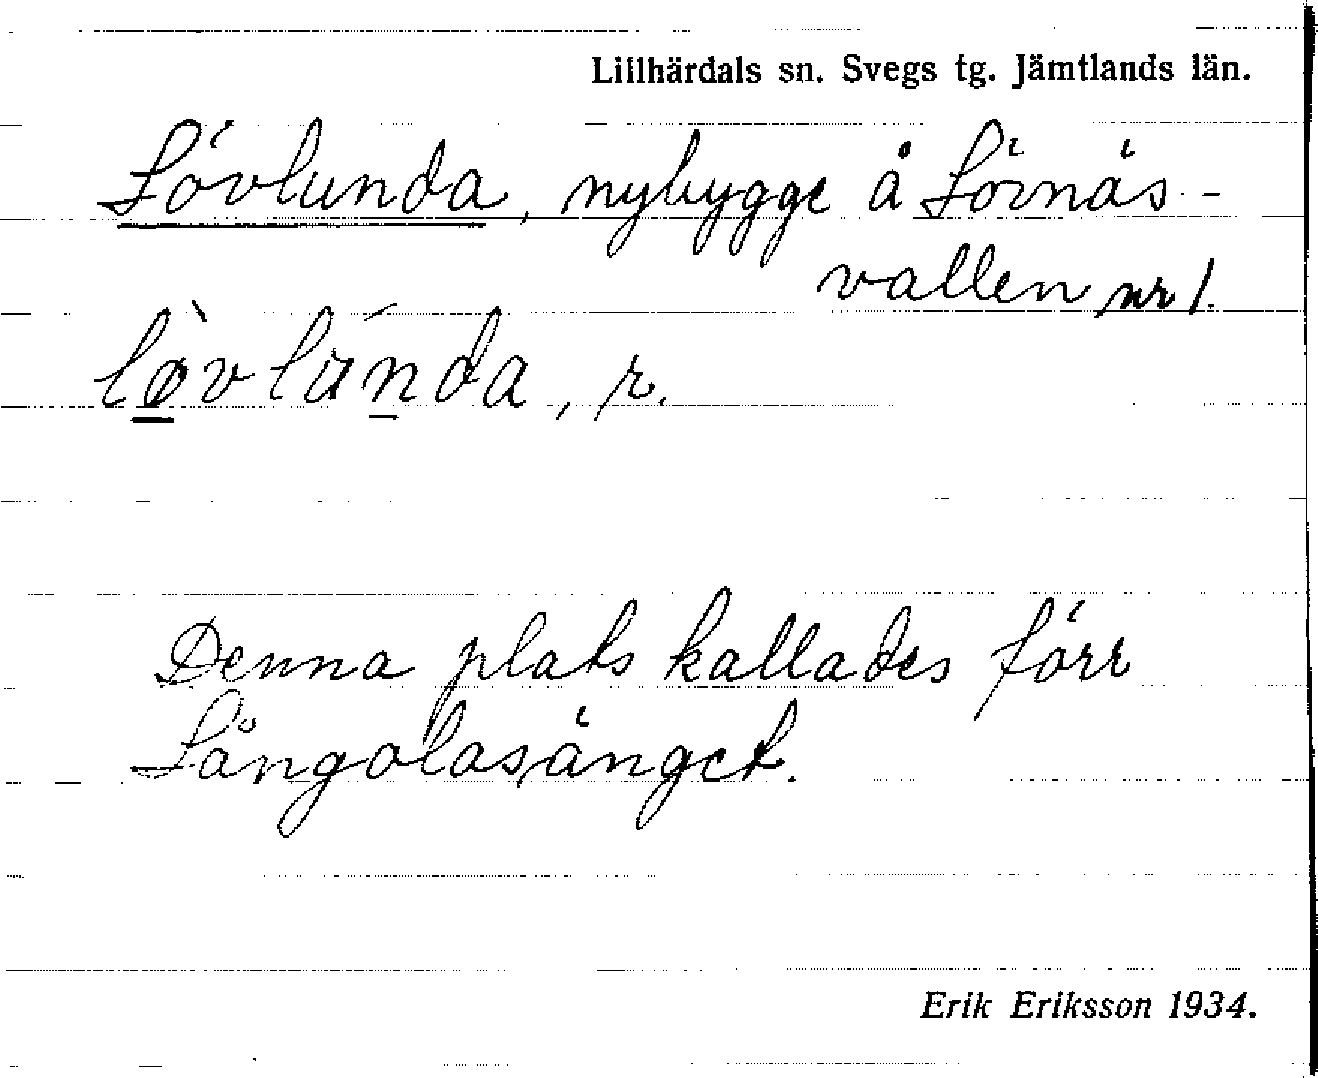 Lillhärdals sn. Svegs tg. Jämtlands län.
Lövlunda, nybygge å Lövnäs-
vallen nr 1.
lø̀vlúnda, r.
Denna plats kallades förr
Långolasänget.
Erik Eriksson 1934.